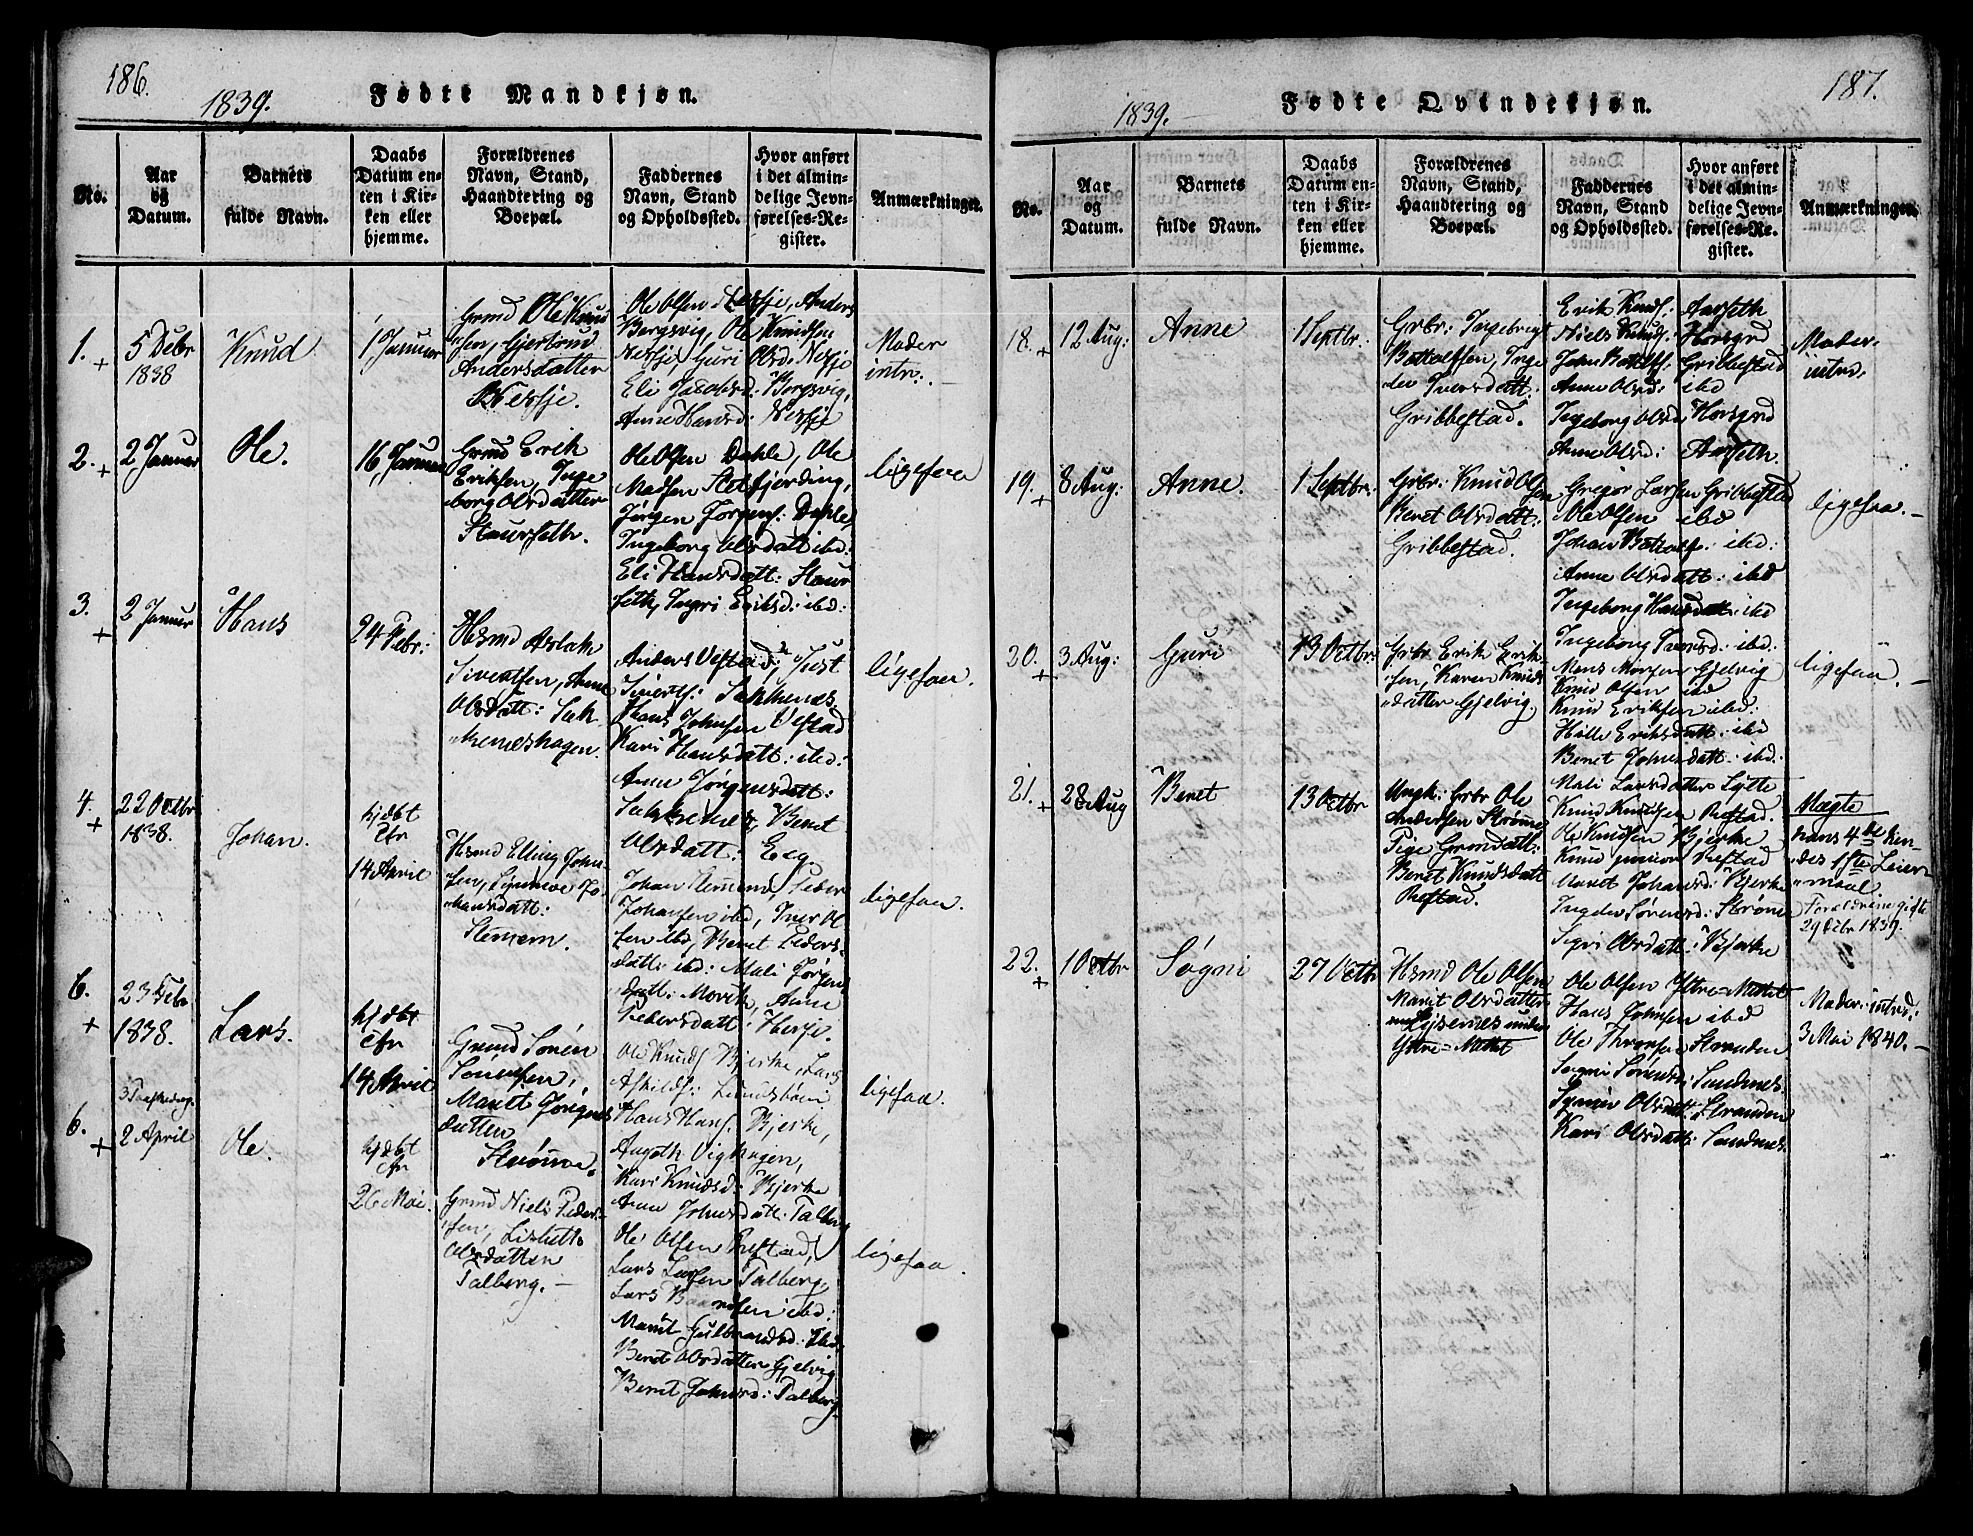 186.
1839.
Fødte Mandkjøn.
No.
Aar
og
Datum.
Barnets
fulde Navn.
Daabs
Datum en-
ten i Kir-
ken eller
hjemme.
Forældrenes
Navn, Stand,
Haandtering og
Boepæl.
Faddernes
Navn, Stand
og Opholdssted.
Hvor anført
i det almin-
delige Jevn-
førelses-Re-
gister.
Anmærkninger.
1.
+
5 Debr
1838
Knud
1 Januar
Grmd Ole Knud
sen, Gjertrud
Andersdatter
Nersje.
Ole Olsen Nersje, Anders
Bergsvig, Ole Knudsen
Nersje, Guri Olsd: Nersje
Eli Jacobsd: Bergsvig,
Anne Hansd: Nersje
Moder
intr:.
2.
+
2 Januar
Ole.
16 Januar
Grmd Erik
Eriksen, Inge
borg Olsdatter
Staurseth.
Ole Olsen Dahle, Ole
Madsen Slotfjording,
Jørgen Jørgens: Dahle,
Ingeborg Olsdatt ibd:
Eli Hansdatt: Staur
seth, Ingri Eriksd: ibd:
ligesaa
3.
+
2 Januar
Hans
24 Febr:
Hsmd Aslak
Sivertsen, Anne
Olsdatt: Sek
kenæshagen.
Anders Vestad, Just
Siverts: Sekkenæs,
Hans Johnsen Vestad
Kari Hansdatt: ibd:
Anne Jørgensdatt:
Sekkenæs, Beret
Olsdatt: Eeg.
ligesaa.
4.
+
22 Octbr
1838.
Johan.
hj dbt
cfr
14 April
Hsmd Elling John
sen, Synneve Jo
hansdatt:
Stemem.
Johan Stemem, Peder
Johansen ibd, Iver Ol
sen ibd, Beret Peders-
datt: ibd: Mali Jørgens
datt: Morik, Anne
Pedersdatt: Hersje.
ligesaa.
6.
+
23 Febr.
1838.
Lars.
hj dbt
cfr
14 April
Grmd Søren
Sørensen,
Marit Jørgens
datter
Strømme.
Ole Knuds: Bjerke, Lars
Askilds:
Hans Hans: Bjerke,
Kari Knudsd: Bjerke
Anne Johnsdatt: Talberg
ligesaa.
6.
+
2 April
Ole.
hj dbt
cfr
26 Mai.
Grmd Niels Peder-
sen, Lisbeth
Olsdatter
Talberg.
Ole Olsen Refstad,
Lars Larsen Talberg,
Lars ibd:
Marit Gulbrandsd: ibd
Beret Olsdatter Gjelvig
Beret Johnsd: Talberg
ligesaa.
187.
1839.
Fødte Qvindekjøn.
No.
Aar
og
Datum.
Barnets
fulde Navn.
Daabs
Datum en-
ten i Kir-
ken eller
hjemme.
Forældrenes
Navn, Stand,
Haandtering og
Boepæl.
Faddernes
Navn, Stand
og Opholdssted.
Hvor anført
i det almin-
delige Jevn-
førelses-Re-
gister.
Anmærkninger.
18.
+
12 Aug:
Anne
1 Septbr.
Grbr: Ingebrigt
Bottolfsen, Inge
der Iversdatt:
Gribbestad.
Erik Knuds: Aarseth
Niels Knuds: Horsgrd
John Bottolfs: Gribbestad
Anne Olsd: ibd
Ingeborg Olsd Horsgrd
Anne Olsd: Aarseth
Moder
intrd.
19.
+
8 Aug:
Anne.
1 Septbr.
Grbr: Knud Olsen
Beret Olsdatt:
Gribbestad.
Gregor Larsen Gribbestad
Ole Olsen ibd
Johan Bottolfs: ibd:
Anne Olsdatt: ibd
Ingeborg Hansdatt: ibd
Ingeborg Iversd: ibd:
ligesaa.
20.
+
3 Aug:
Guri
13 Octbr.
Grbr Erik Erik-
sen, Karen Knuds
datter Gjelvig.
Mons Monsen Gjelvig
Knud Olsen ibd
Knud Eriksen ibd:
Hille Eriksdatt: ibd
Beret Johnsdatt: ibd:
Mali Larsdatter Lytte
ligesaa.
21.
+
28 Aug
Beret
13 Octbr
Ungk: Grbr Ole
Andersen Strømme
Pige Grmdatt:
Beret Knudsdatt
Refstad.
Knud Knudsen Refstad.
Ole Knudsen Bjerke
Knud junior Refstad
Marit Johansd: Bjerke
Ingder Sørensd: Strømme
Sigri Olsdatt: Bjerke
Uægte
hans 4de hen-
des 1ste Leier
maal.
Forældrene gifte
29 Debr 1839.
22.
+
1 Octbr
Sogni
27 Octbr
Hsmd Ole Olsen
Marit Olsdatter
under
Yttre-Mettet
Ole Olsen Yttre-Mettet
Hans Johnsen ibd
Ole Thronsen Stranden
Sogni Sørensd: Sandnæs
Synnev Olsdatt: Stranden
Kari Olsdatt: Sandnæs.
Moder: intrd:
3 Mai 1840.